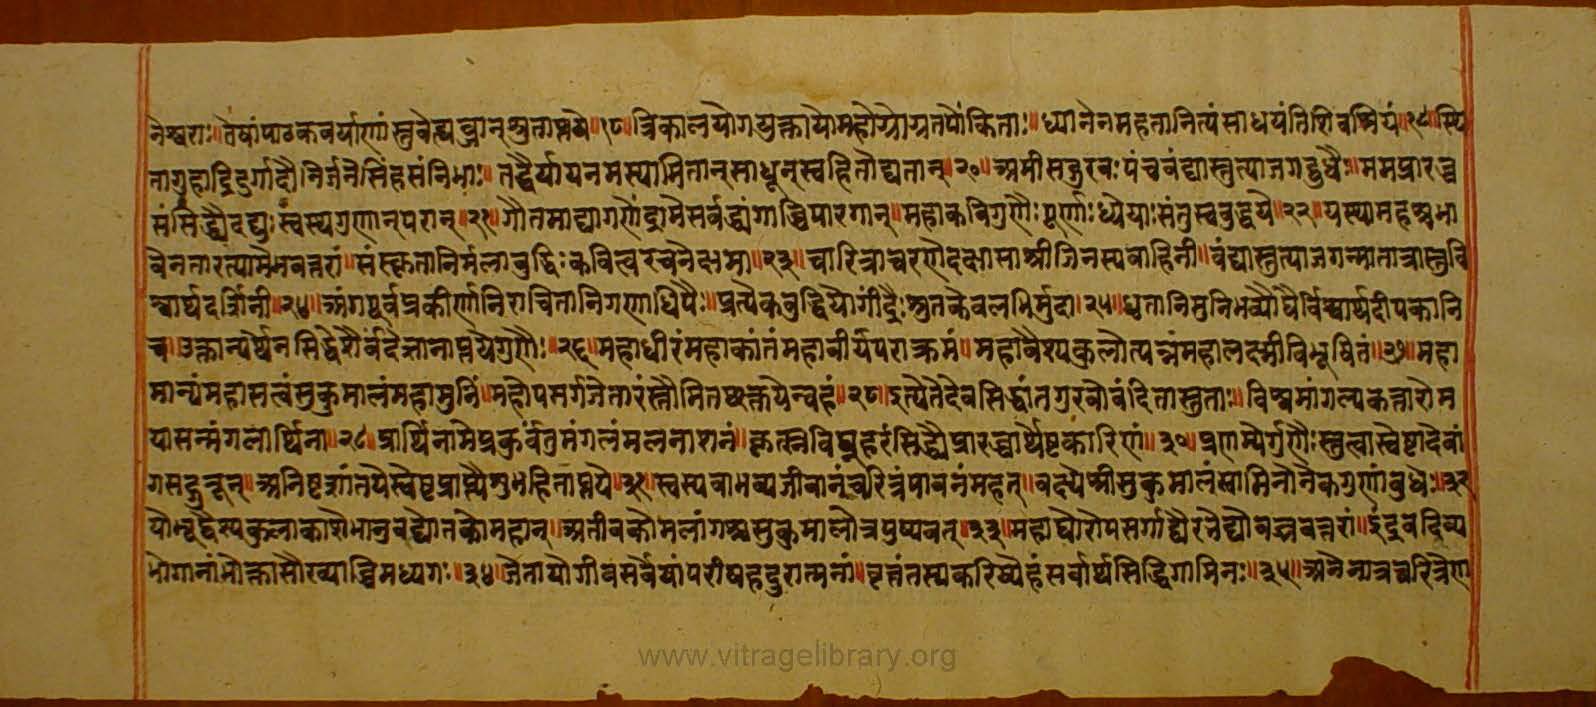 नेश्वराः॥तेषांपाठकवर्याणांस्तुवेत्यघ्रान्श्रुताप्तये॥१८॥त्रिकालयोगयुक्तायेमहोग्रोग्रतपोंकिताः॥ध्यानेनमहतानित्यंसाधयंतिशिवश्रियं॥१९॥स्थि
तागुहाद्रिदुर्गादौनिर्जनेसिंहसंनिभाः॥तद्धैर्यायनमस्यामितान्साधून्स्वहितोद्यतान्॥२०॥अमीसद्गुरवःपंचवंद्यास्तुत्याजगद्बुधैः॥ममप्रारब्ध
संसिद्ध्यैदद्युःस्वस्यगुणान्परान्॥२१॥गौतमाद्यागणेंद्रामेसर्वर्द्ध्यंगाब्धिपारगान्॥महाकविगुणैःपूर्णाःध्येयाःसंतुस्वबुद्धये॥२२॥यस्यामहप्रभा
वेनतारत्यामेभवत्तरां॥संस्कृतानिर्मलाबुद्धिःकवित्वरचनेक्षमा॥२३॥चारित्राचरणेदक्षासाश्रीजिनस्यवाहिनी॥वंद्यास्तुत्याजगन्मातात्रास्तुवि
श्वार्थदर्शिनी॥२४॥अंगपूर्वप्रकीर्णानिरचितानिगणाधिपैः॥प्रत्येकबुद्धियोगींद्रैःश्रुतकेवलभिर्मुदा॥२५॥धृतानिमुनिभव्यौघैर्विश्वार्थदीपकानि
च॥उक्तान्यर्थेनसिद्धेशैर्वंदेज्ञानाप्तयेगुणैः॥२६॥महाधीरंमहाकांतंमहावीर्यपराक्रमं॥महावैश्यकुलोत्पन्नंमहालक्ष्मीविभूषितं॥२७॥महा
मान्यंमहासत्वंसुकुमालंमहामुनिं॥महोपसर्गजेतारंस्तौमितछक्तयेन्वहं॥२८॥इत्येतेदेवसिद्धांतगुरवोवंदितास्तुताः॥विश्वमांगल्यकर्त्तारोम
यासन्मंगलार्थिना॥२९॥प्रार्थिनामेप्रकुर्वंतुमंगलंमलनाशनं॥कृत्स्नविघ्नहरंसिद्ध्यैप्रारब्धार्थेष्टकारिणां॥३०॥प्रणम्यैर्गुणैःस्तुत्वास्वेष्टादेवां
गसद्गुरून्॥अनिष्टशांतयेस्वेष्टप्राप्त्यैशुभहिताप्तये॥३१॥स्वस्यवाभव्यजीवानांचरित्रंपावनंमहत्॥वक्ष्येश्रीसुकुमालस्वामिनोनैकगुणांबुधेः॥३२
योभूद्वैश्यकुलाकाशेभानुवद्द्योतकोमहान्॥अतीवकोमलांगश्चसुकुमालोत्रपुष्पवत्॥३३॥महाघोरोपसर्गाद्यैरभेद्योवज्रवत्तरां॥इंद्रवद्दिव्य
भोगानांभोक्तासौख्याब्धिमध्यगः॥३४॥जेतायोगीवसर्वेषांपरीषहदुरात्मनां॥वृत्तंतस्यकरिष्येहंसर्वार्थसिद्धिगामिनः॥३५॥अनेनात्रचरित्रेण
www.vitragelibrary.org